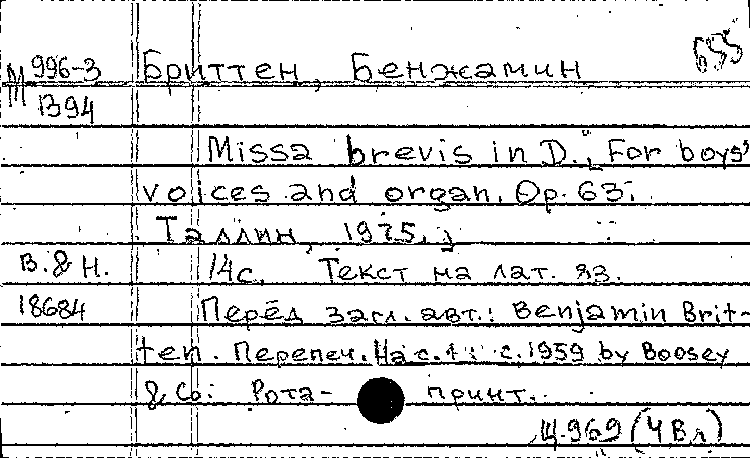 655
М 996-3 Бриттен, Бенжамин
В94
Missa brevis in D., For boys'
voices and organ. Op. 63.
Таллин, 1975.
B. & H. 14 с. Текст на лат. яз.
18684 Перед загл. авт.: Benjamin Brit-
ten. Перепеч. На с. 1: с. 1959 by Boosey
& Co. Рота- принт.
Щ-969 (4 Вл)